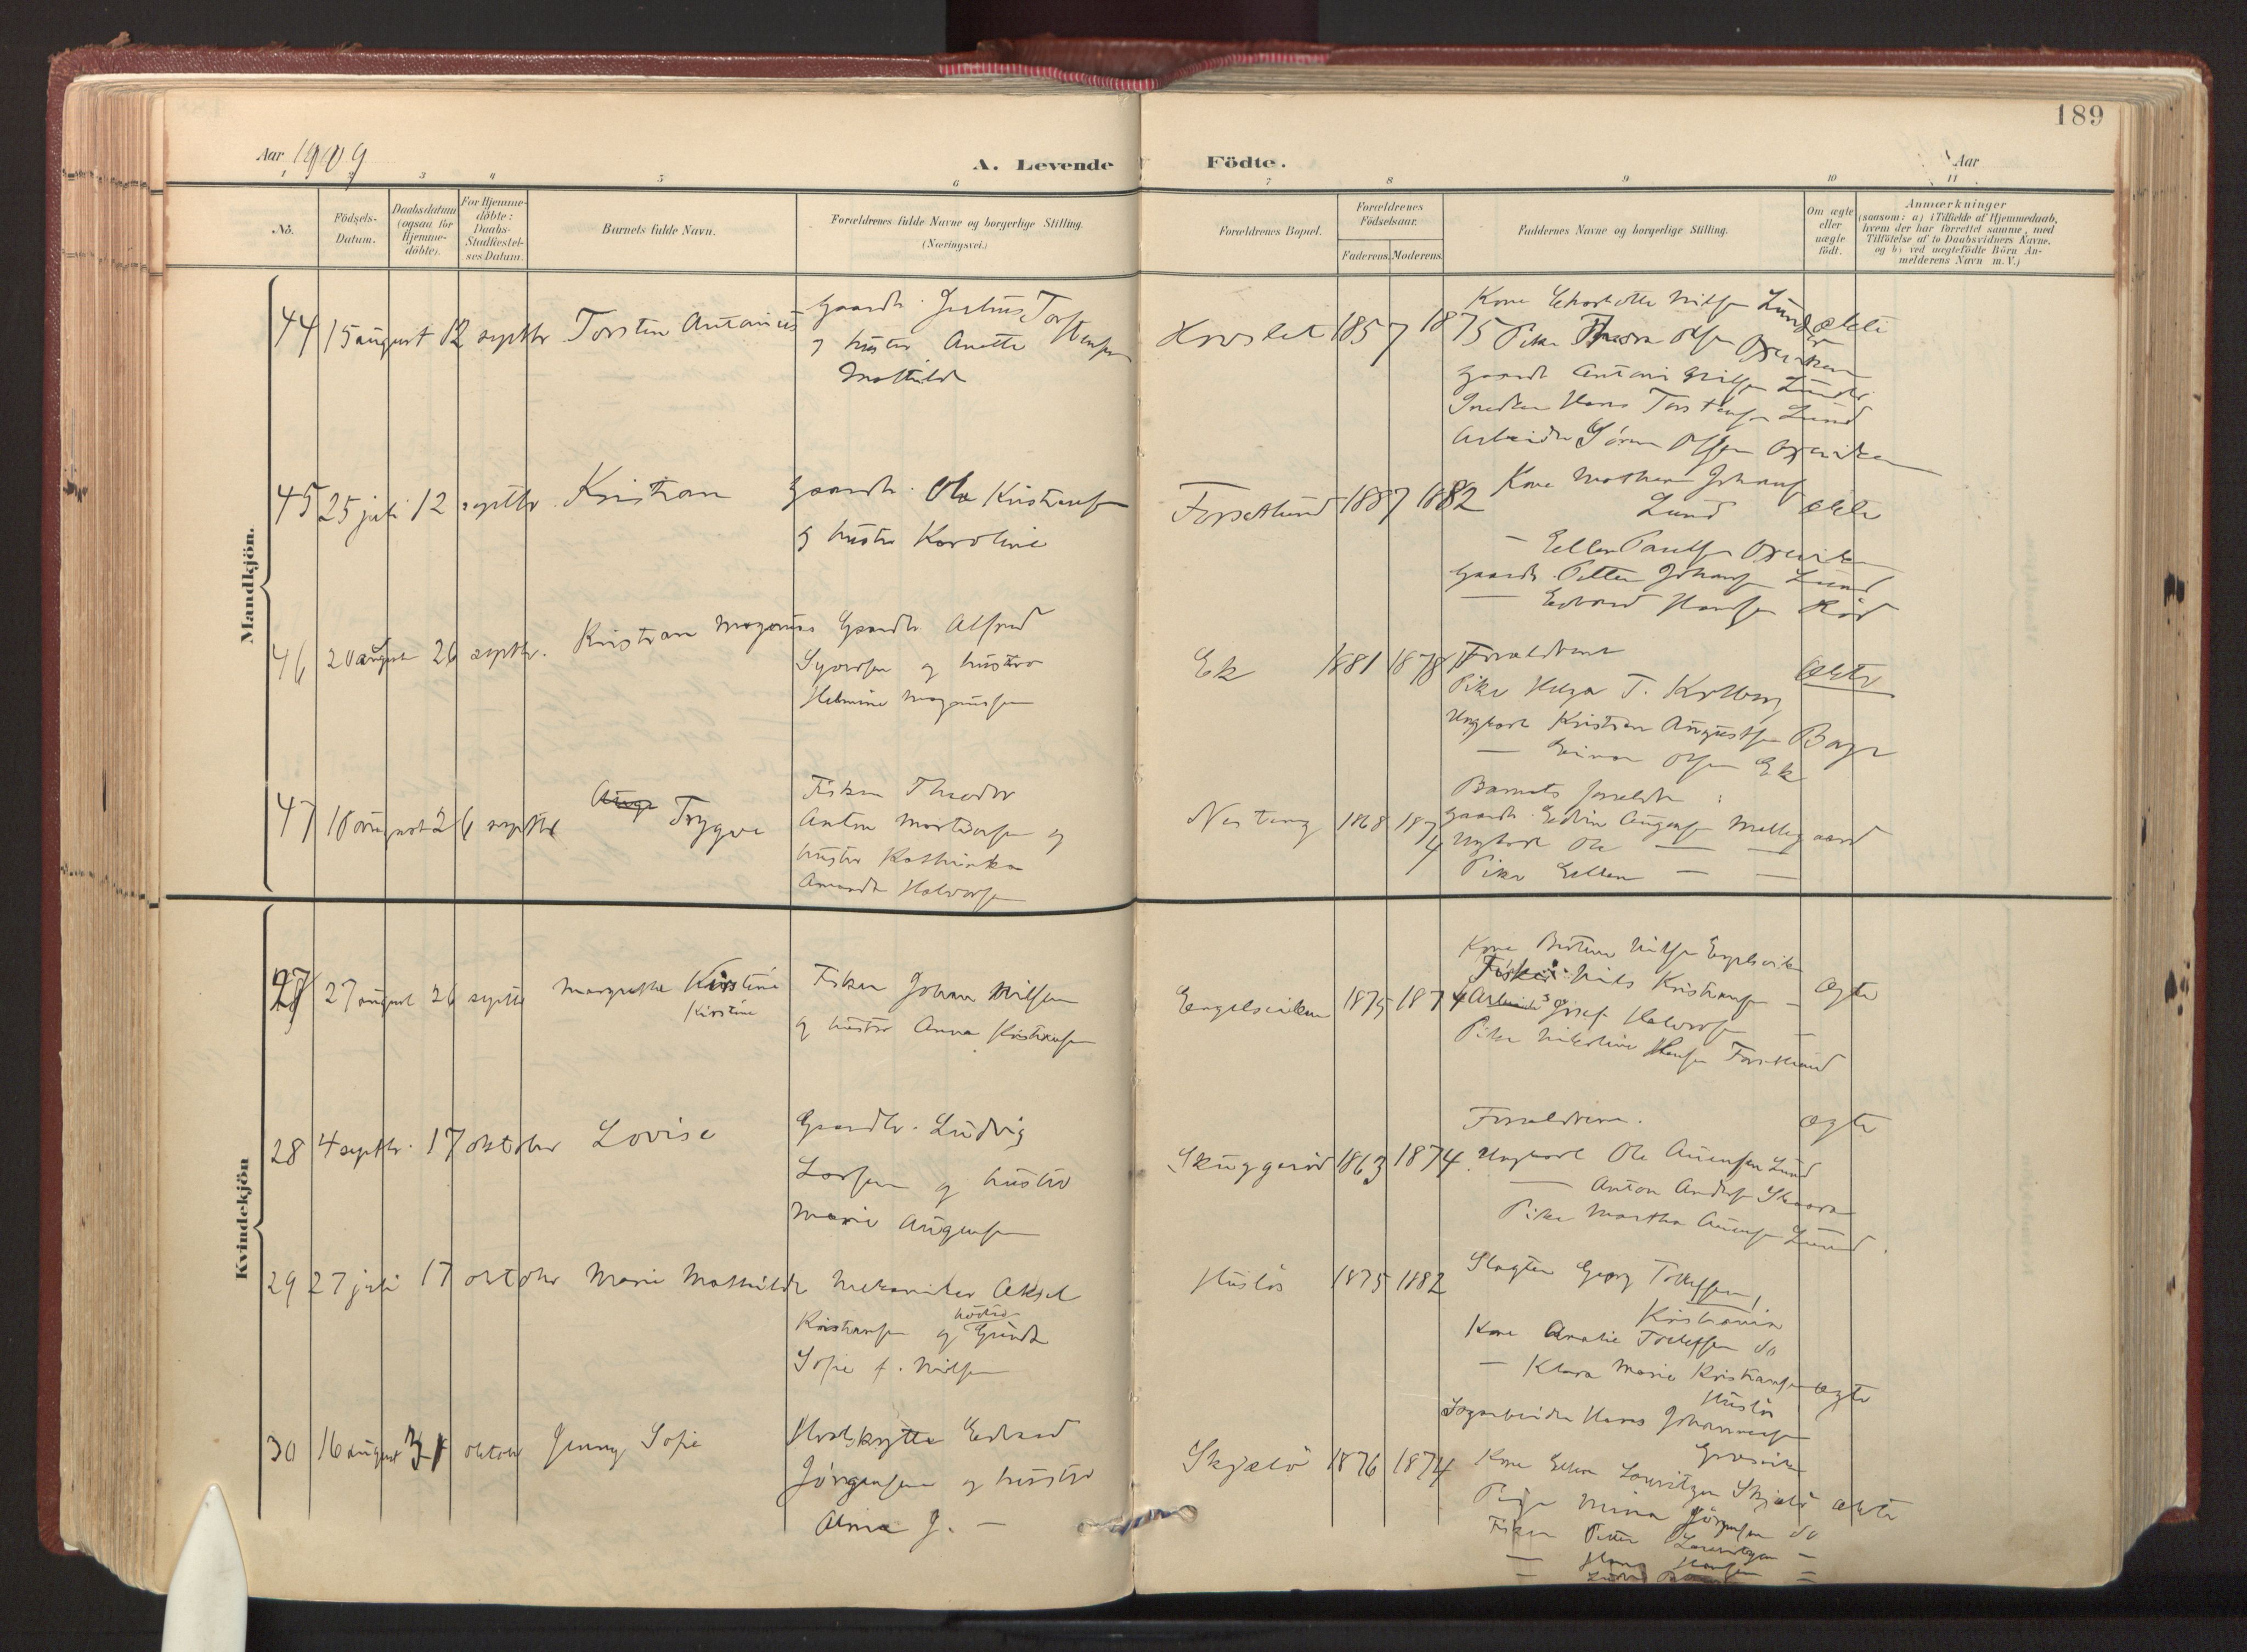 189
Aar 1909
A. Levende Födte.
Aar
1 2 3 4 5 6 7 8 9 10 11
No.
Födsels-Datum.
Daabsdatum (ogsaa för Hjemme-döbte).
For Hjemme-döbte: Daabs-Stadfæstel-ses Datum.
Barnets fulde Navn.
Forældrenes fulde Navne og borgerlige Stilling.
(Næringsvei.)
Forældrenes Bopæl.
Forældrenes Födselsaar.
Faderens. Moderens.
Faddernes Navne og borgerlige Stilling.
Om ægte eller uægte födt.
Anmærkninger
(saasom: a) i Tilfælde af Hjemmedaab,
hvem der har forrettet samme, med
Tilföielse af to Daabsvidners Navne,
og b) ved uægtefödte Börn An-
melderens Navn m. V.)
Mandkjön.
44 15 august 12 septbr Torsten Antonius
Gaardb. Julius Torstensen
og hustru Anette
Mathilde
1857 1875
Kone Charlotte Nilsen Lund
Pike Thora Olsen
Gaardb Anton Nilsen Lund
Hans Torstensen Lund
Arbeider Sören Olsen
ækte
45 25 juli 12 septbr. Kristian
Gaardb. Ole Kristiansen
og hustru Karoline
Forsetlund 1887 1882
Kone Mathea Johansen
Lund
ækte
— Ellen Paulsen
Gaardb. Petter Johansen Lund
— Edvard Hansen Röd
46 20 august 26 septbr. Kristian Magnus
Gaardb. Alfred
Syversen og hustru
Helmine Magnussen
Ek 1881 1878
Forældrene
ækte
Pike Helga T. Kolberg
Ungkarl Kristian Augustsen Berge
— Einar Olsen Ek
47 18 august 26 septbr Trygve
Fisker Theodor
Anton Mortensen og
hustru Kathinka
Amanda Halvorsen
1868 1874
Barnets forældre :
Gaardb. Edvin Augensen Mellegaard
Ungkarl Ole — —
Pike Ellen — —
Kvindekjön
27 27 august 26 septbr Margrethe Kirstine
Kirstine
Fisker Johan Nilsen
og hustru Anna Kristiansen
Engelsviken 1875 1874
Kone Nilsen Engelsvik
Fisker Nils Kristiansen —
Arbeider Josef Halvorsen —
Pike Nikoline Hansen Forsetlund
ægte
28 4 septbr. 17 oktober Lovise
Gaardbr. Ludvig
Larsen og hustru
Marie Augensen
Skuggeröd 1863 1874
Forældrene.
ægte
Ungkarl Ole Auensen Lund
— Anton Andersen
Pike Martha Auensen Lund
29 27 juli 17 oktober Marie Mathilde
Mekaniker Aksel
Kristiansen og hustru Gunda
Sofie f. Nilsen
Huslös 1875 1882
Slagter Georg Tollefsen,
Kristiania
Kone Amalie Tollefsen do
— Klara Marie Kristiansen
Huslös
ægte
Sagarbeider Hans Johannesen
Gresvik
30 16 august 31 oktober Jenny Sofie
Edvard
Jörgensen og hustru
Alma J. —
Skjælö 1876 1874
Kone Ellen Lauritzen Skjælö
ækte
Pige Mina Jörgensen do
Fisker Petter Lauritzen —
— Hans Hansen —